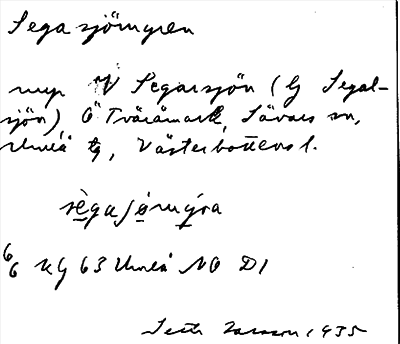 Segasjömyren
myr V Segarsjön (Ej Segal-
sjön) Ö Tväråmark, Sävars sn,
Umeå tg, Västerbottens l.
sègasjömýra
6 KG 63 Umeå NO D1
Seth Larsson 1935